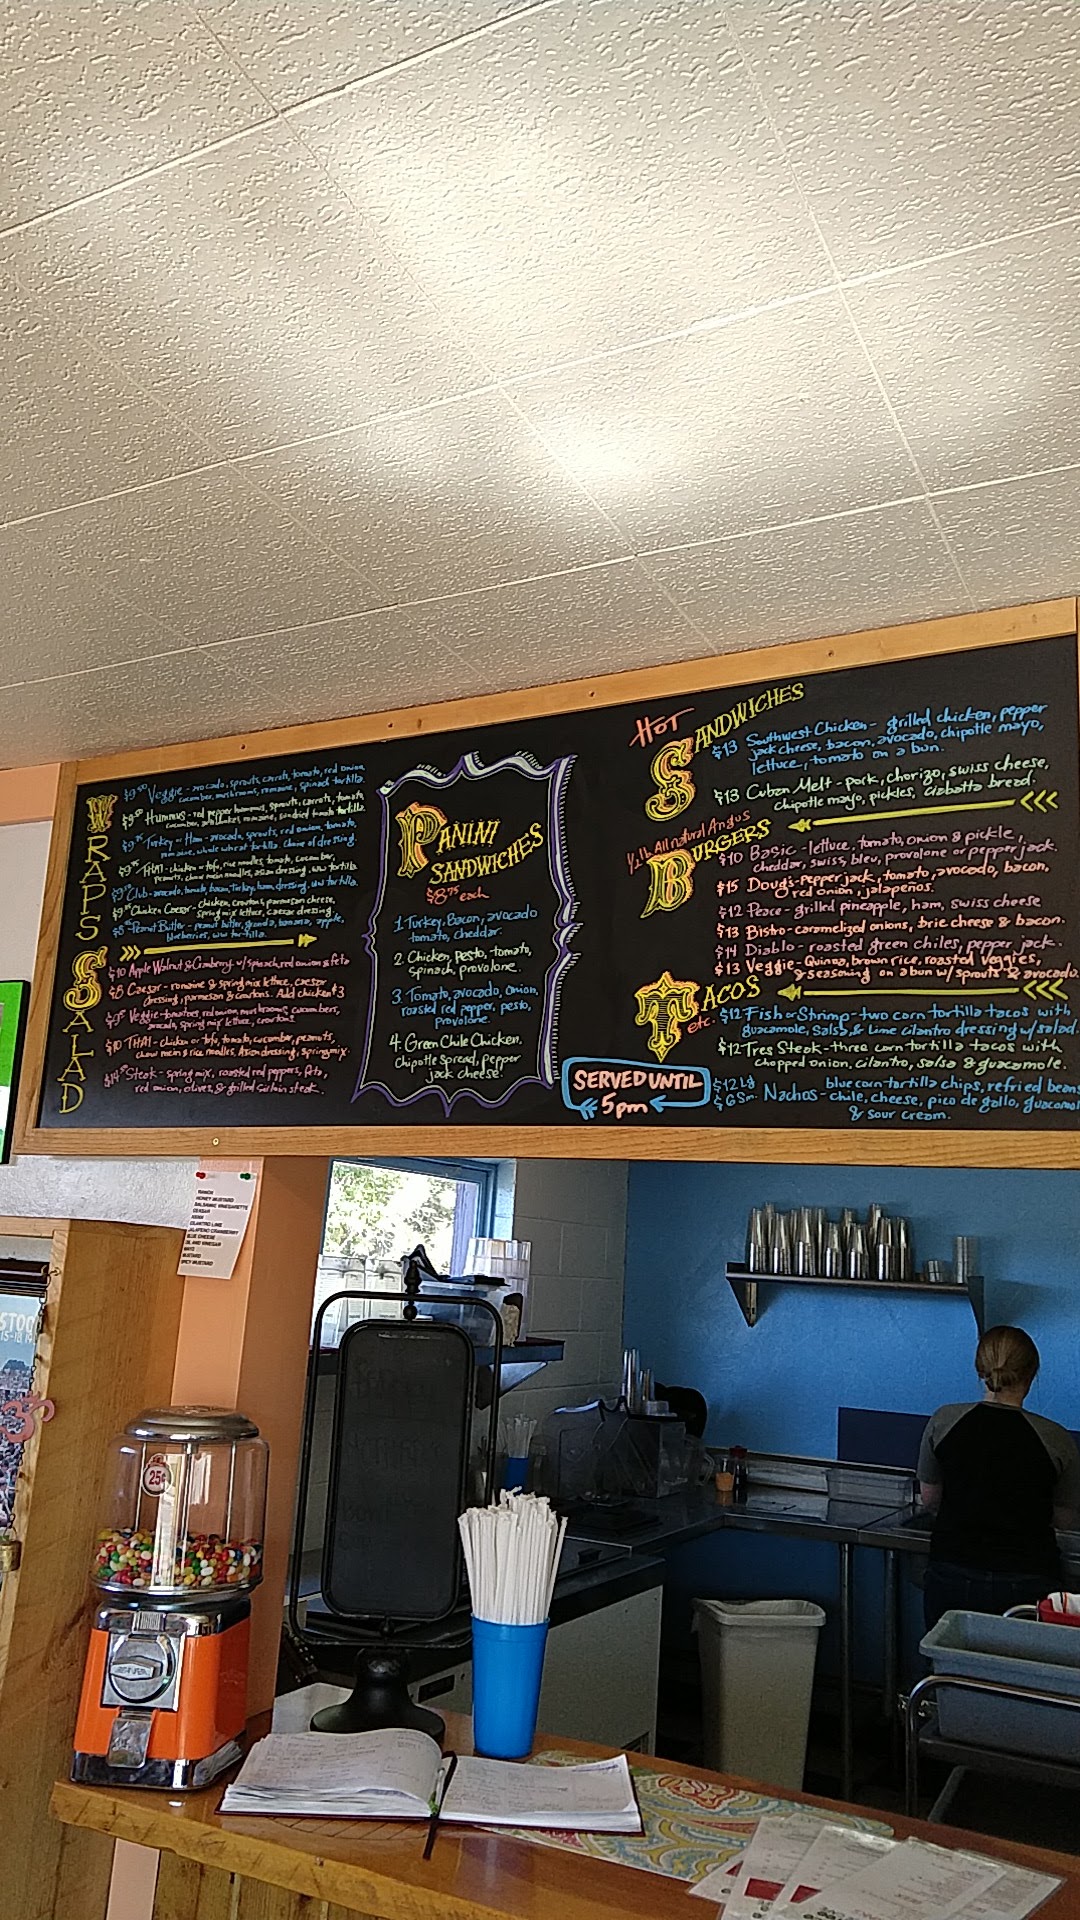 WRAPS
Veggie - avocado, sprouts, carrots, tomato, red onion,
cucumber, mushrooms, romaine, spinach tortilla.
Hummus - red pepper hummus, sprouts, carrots, tomato,
Turkey or Ham - avocado, sprouts, red onion, tomato,
romaine, whole wheat tortilla. Choice of dressing.
THAI - chicken or tofu, rice noodles, tomato, cucumber,
peanuts, chow mein noodles, asian dressing, ww tortilla
Club - avocado, tomato, bacon, turkey, ham, dressing, ww tortilla.
Chicken Caesar - chicken, croutons, parmesan cheese,
spring mix lettuce, caesar dressing.
Peanut Butter - peanut butter, granola, banana, apple,
blueberries, ww tortilla.
SALAD
$10 Apple Walnut & Cranberry w/ spinach, red onion & feta
$8 Caesar - romaine & spring mix lettuce, caesar
dressing, parmesan & croutons. Add chicken $3
Veggie - tomatoes, red onion, mushrooms, cucumbers,
avocado, spring mix lettuce, croutons
$10 THAI - chicken or tofu, tomato, cucumber, peanuts,
chow mein & rice noodles, Asian dressing, spring mix.
Steak - spring mix, roasted red peppers, feta,
red onion, olives, & grilled sirloin steak.
PANINI
SANDWICHES
$8.95 each
1. Turkey, Bacon, avocado
tomato, cheddar.
2. Chicken, Pesto, tomato,
spinach, provolone.
3. Tomato, avocado, onion,
roasted red pepper, pesto,
provolone.
4. Green Chile Chicken,
Chipotle spread, pepper
jack cheese.
HOT
SANDWICHES
$13 Southwest Chicken - grilled chicken, pepper
jack cheese, bacon, avocado, chipotle mayo,
lettuce, tomato on a bun.
$13 Cuban Melt - pork, chorizo, swiss cheese,
chipotle mayo, pickles, Ciabatta bread.
1/2 lb All natural Angus
BURGERS
$10 Basic - lettuce, tomato, onion & pickle,
cheddar, swiss, bleu, provolone or pepper jack.
$15 Doug's - pepper jack, tomato, avocado, bacon,
red onion, jalapeños.
$12 Peace - grilled pineapple, ham, swiss cheese
$13 Bistro - caramelized onions, brie cheese & bacon.
$14 Diablo - roasted green chiles, pepper jack.
$13 Veggie - Quinoa, brown rice, roasted veggies,
& seasoning on a bun w/ sprouts & avocado.
TACOS
etc.
$12 Fish or Shrimp - two corn tortilla tacos with
guacamole, salsa & lime cilantro dressing w/ salad.
$12 Tres Steak - three corn tortilla tacos with
chopped onion, cilantro, salsa & guacamole.
$12 Lg
$6 Sm. Nachos - blue corn tortilla chips, refried beans
chile, cheese, pico de gallo, guacamol
& sour cream.
SERVED UNTIL
5pm
RANCH
HONEY MUSTARD
BALSAMIC VINEGARETTE
CEASAR
ASIAN
CILANTRO LIME
JALAPENO CRANBERRY
BLUE CHEESE
OIL AND VINEGAR
MAYO
MUSTARD
SPICY MUSTARD
25¢